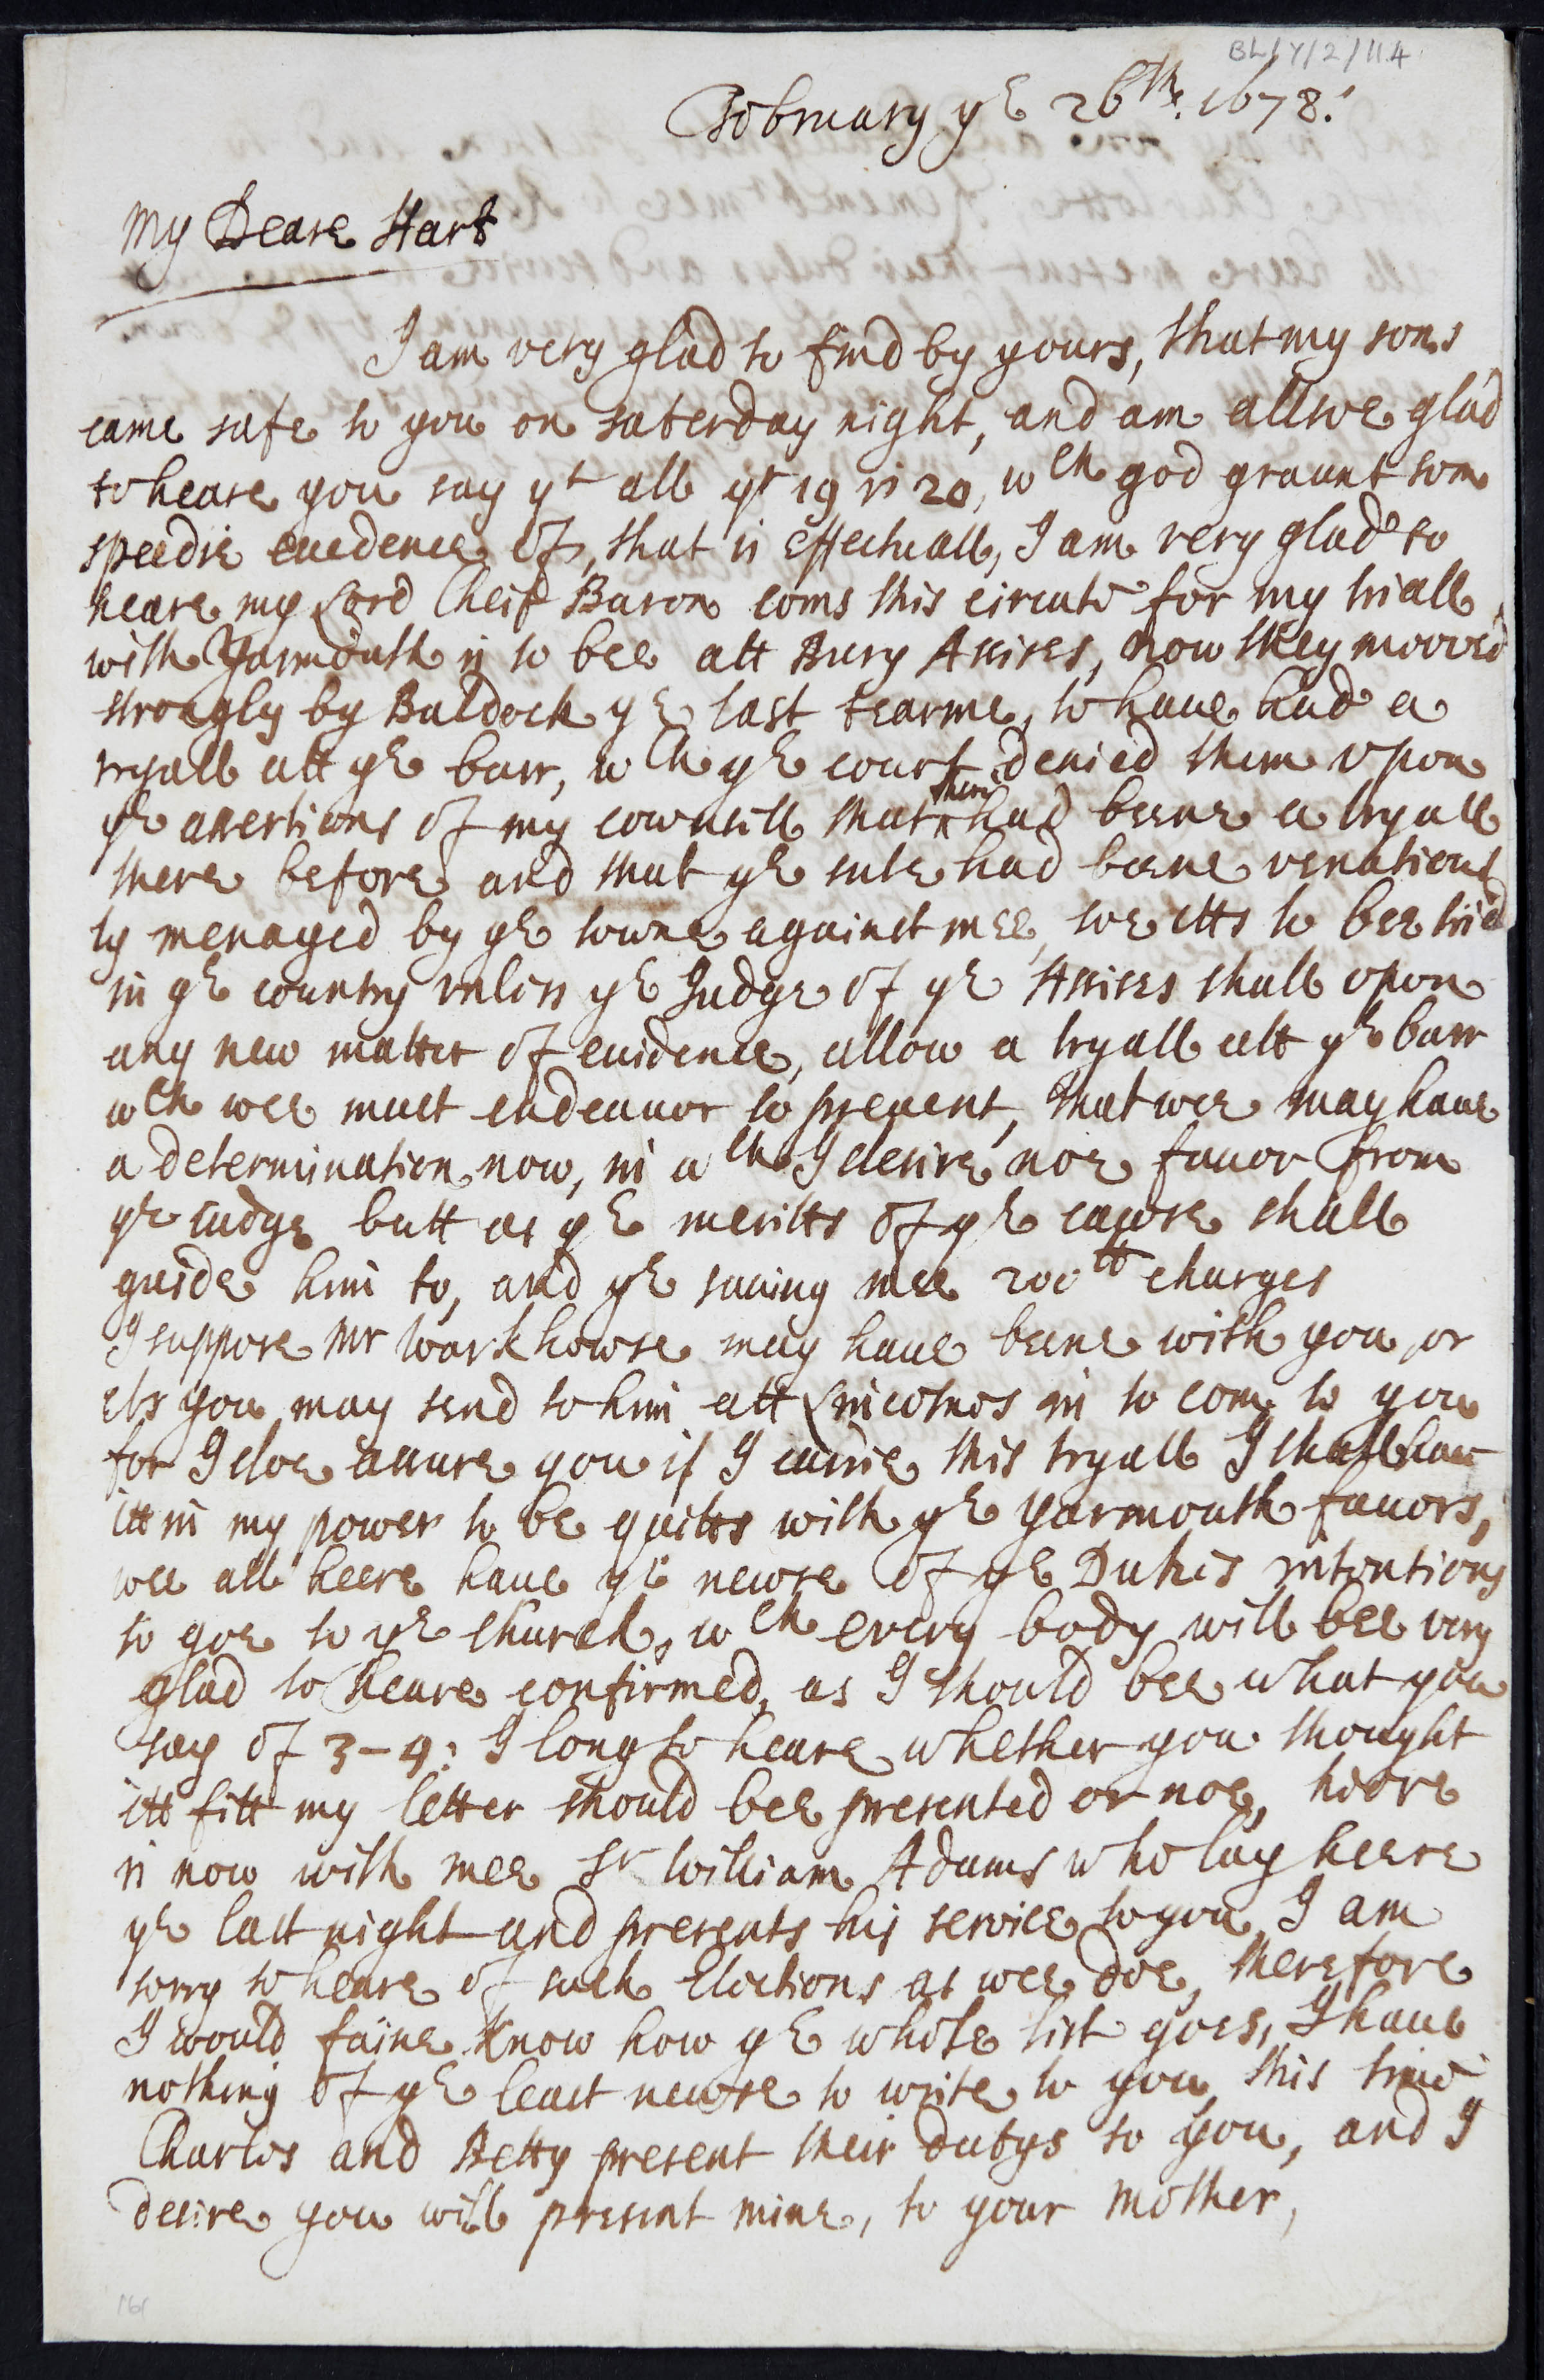 BL/Y/2/114
February ye 26th. 1678.
My Deare Hart
I am very glad to find by yours, that my sons
came safe to you on saterday night, and am allsoe glad
to heare you say yt all yt 19 is 20, wch god graunt som
speedie euedence of, that is effectuall, I am very glad to
heare my Lord Cheif Baron coms this circute for my triall
with Yarmouth is to bee att Bury Assises, now they mooved
strongly by Baldock ye last tearme, to haue had a
tryall att ye barr, wch ye court denied them vpon
ye assertions of my cownsill that there had beene a tryall
there before and that ye sute had beene vexatious
ly menaged by ye towne against mee, soe itts to bee tried
in ye country vnless ye Judge of ye Assises shall vpon
any new matter of euidence, allow a tryall att ye barr
wch wee must endeauor to preuent, that wee may haue
a determination now, in wch I desire noe fauor from
ye iudge butt as ye meritts of ye cawse shall
guide him to, and ye sauing mee 200ll charges
I suppose Mr Warkhowse may haue beene with you, or
els you may send to him att Lincolnes in to com to you
for I doe assure you if I carrie this tryall I shall haue
itt in my power to be quitts with ye Yarmouth fauors,
wee all heere haue ye newse of ye Dukes intentions
to goe to ye church, wch every body will bee very
glad to heare confirmed, as I should bee what you
say of 3-4: I long to heare whether you thought
itt fitt my letter should bee presented or noe, heere
is now with mee Sr William Adams who lay heere
ye last night and presents his service to you, I am
sorry to heare of such Elections as wee doe, therefore
I would faine know how ye whole list goes, I haue
nothing of ye least newse to write to you this time
Charles and Betty present their dutys to you, and I
desire you will present mine, to your mother,
161